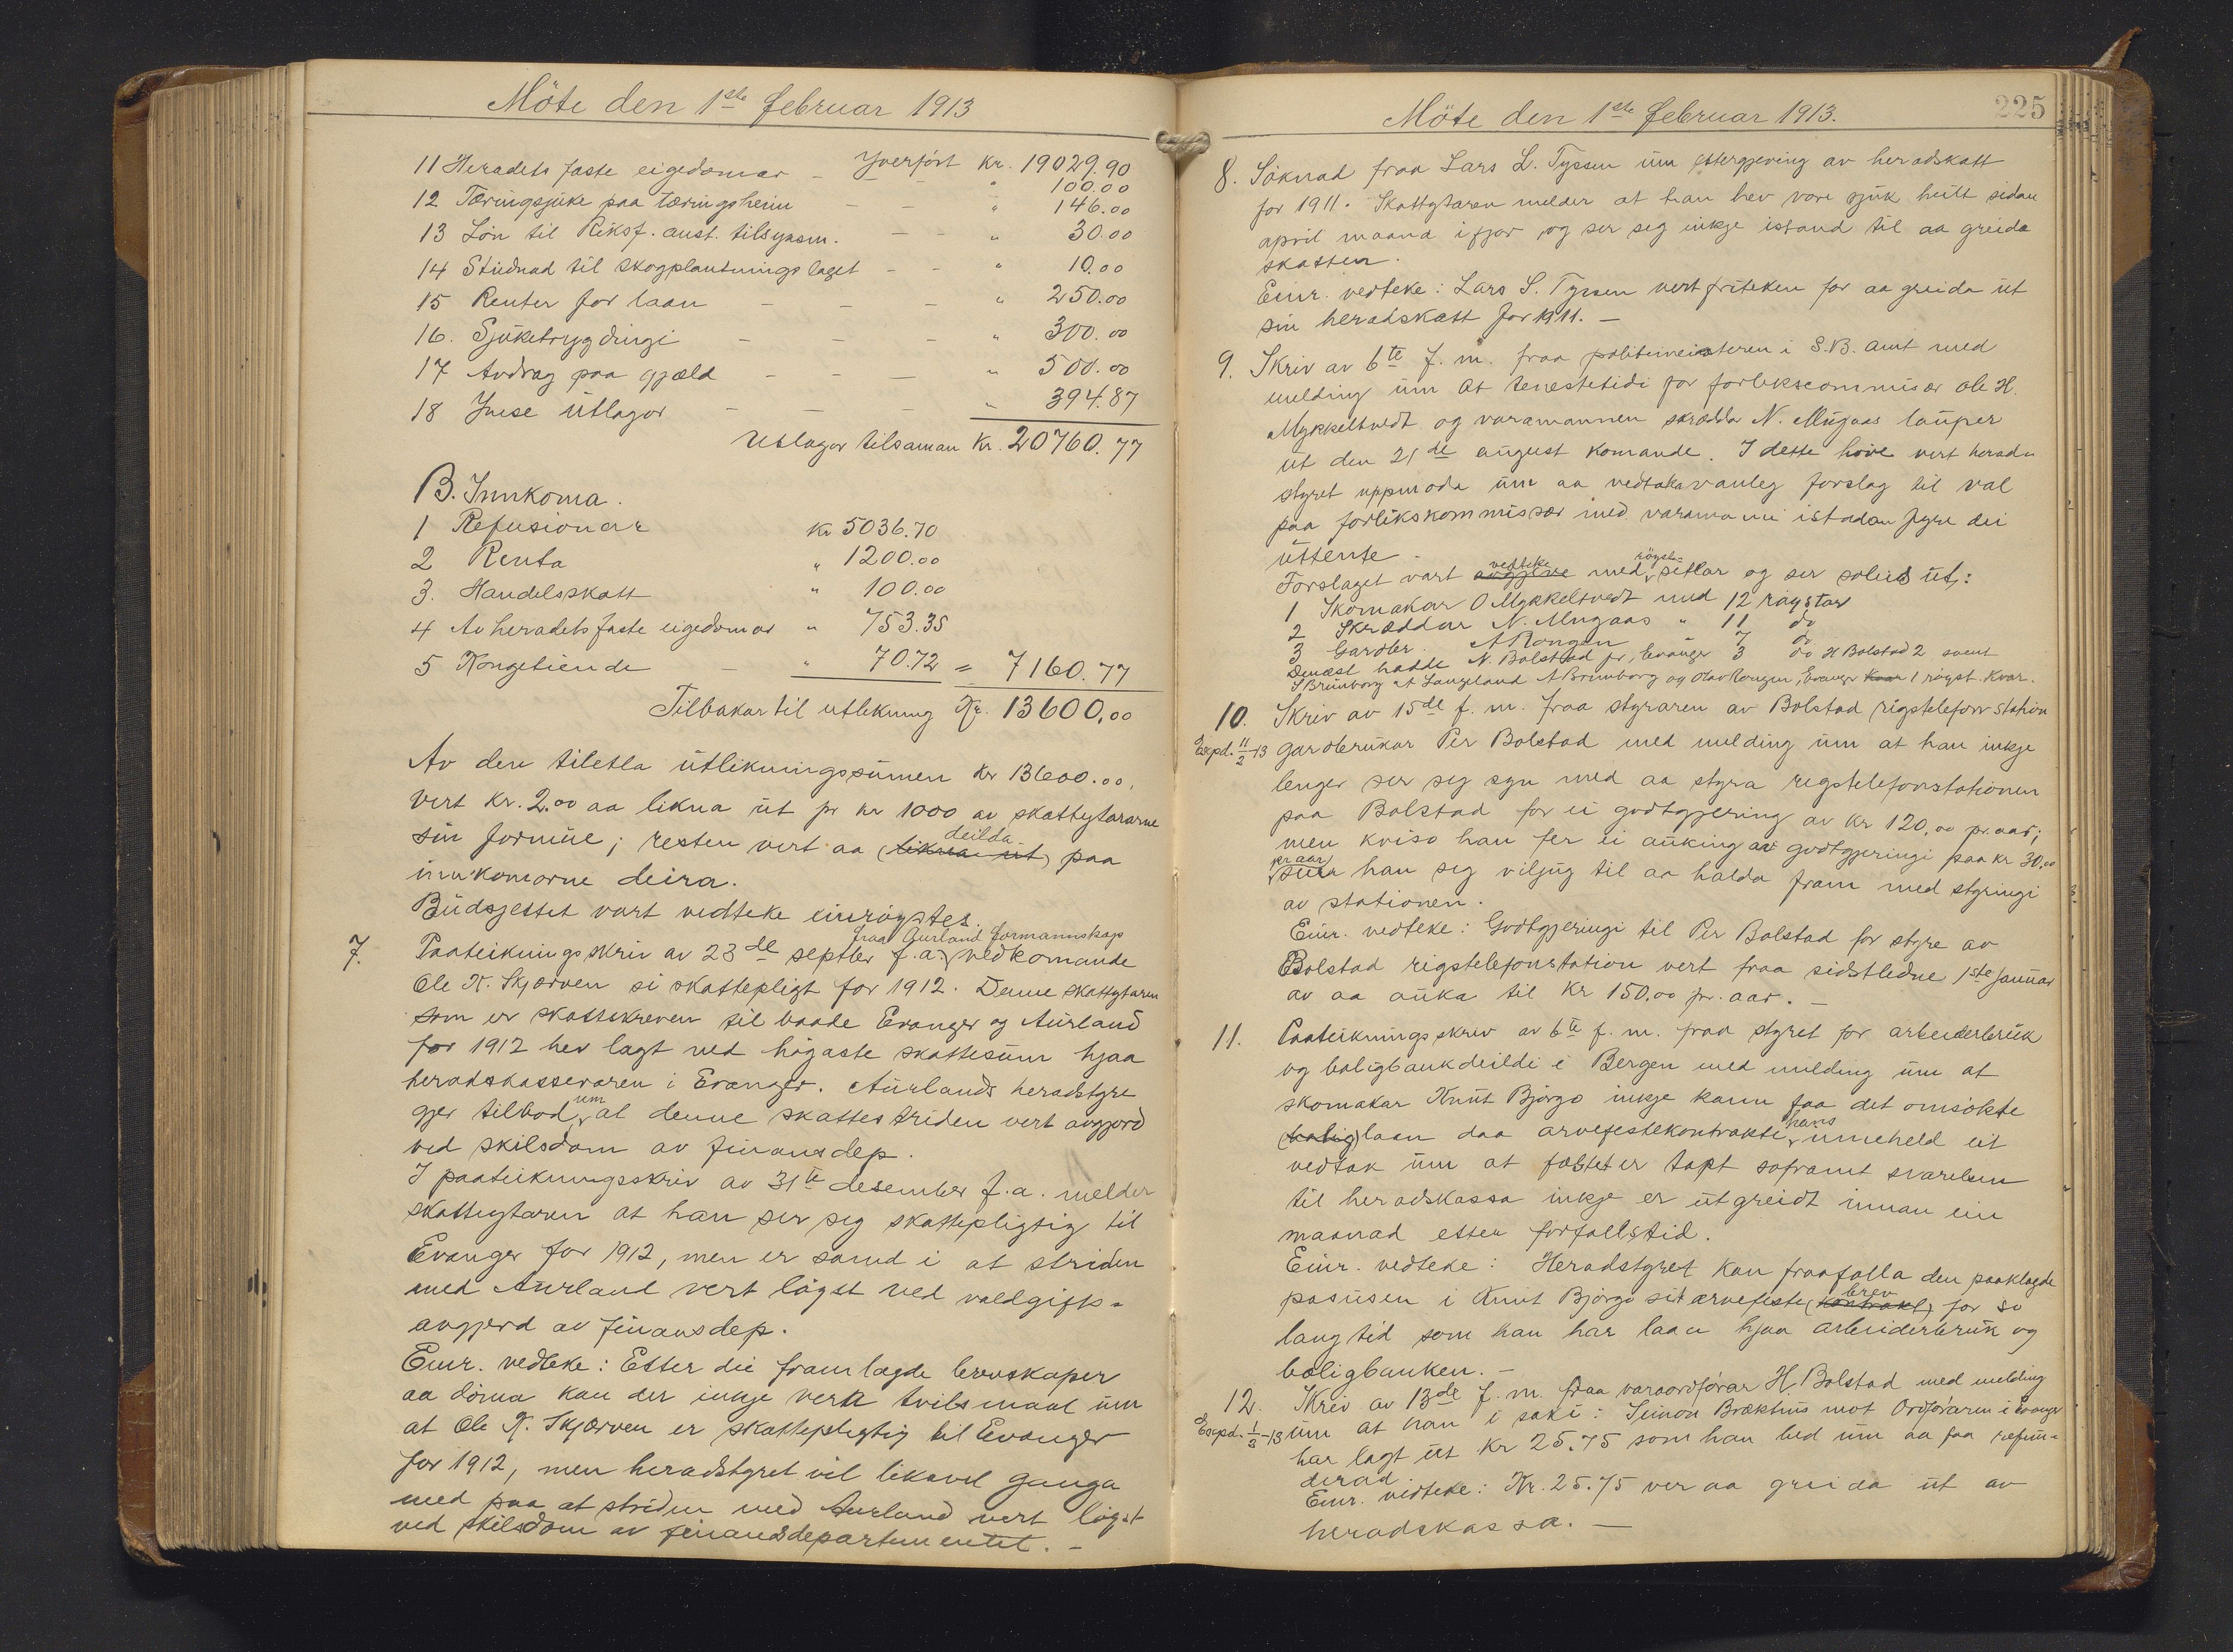 Möte den 1ste februar 1913
Yverført Kr. 19029.90
11 Heradets faste eigedomar - " 100.00
12 Tæringsjuke paa tæringsheim - - " 146.00
13 Løn til Riksf. anst. tilsynsm. - - " 30.00
14 Studnad til skogplantningslaget - - " 10.00
15 Renter for laan - - - " 250.00
16. Sjuketrygdingi - - - " 300.00
17 Avdrag paa gjæld - - - " 500.00
18 Ymse utlagor - - - " 394.87
Utlagor tilsaman Kr. 20760.77
B. Innkoma.
1 Refusionar Kr 5036.70
2 Renta " 1200.00
3. Handelsskatt " 100.00
4 Av heradets faste eigedomar " 753.35
5 Kongetiende - " 70.72 = 7160.77
Tilbakar til utlikning Kr. 13600,00
Av den tiletla utlikningssumen Kr 13600.00,
vert Kr. 2.00 aa likna ut pr kr 1000 av skattytararne
sin formue; resten vert aa (likna ut) deilda paa
innkomorne deira.
Budsjettet vart vedteke einrøystes.
7. Paateikningsskriv av 23de septber f.a. fraa Aurland formannskap vedkomande
Ole K. Skjerven si skattepligt for 1912. Denne skattytaren
som er skattskreven til baade Evanger og Aurland
for 1912 hev lagt ned høgaste skattesum hjaa
heradskasseraren i Evanger. Aurlands heradstyre
gjer tilbod um at denne skattestriden vert avgjord
ved skilsdom av finansdep.
I paateikningsskriv av 31te desember f.a. melder
skattytaren at han ser seg skattepligtig til
Evanger for 1912, men er samd i at striden
med Aurland vert løyst ved valdgifts-
avgjerd av finansdep.
Einr. vedteke: Etter dei framlagde brevskaper
aa døma kan der inkje vera tvilsmaal um
at Ole K. Skjerven er skattepligtig til Evanger
for 1912, men heradstyret vil likavel ganga
med paa at striden med Aurland vert løyst
ved skilsdom av finansdepartementet. -
Möte den 1ste februar 1913.
225
8. Søknad fraa Lars L. Tyssen um ettergjeving av heradskatt
for 1911. Skattytaren melder at han hev vore sjuk heilt sidan
april maanad i fjor og ser seg inkje istand til aa greida
skatten.
Einr. vedteke: Lars L. Tyssen vert friteken for aa greida ut
sin heradskatt for 1911. -
9. Skriv av 6te f. m. fraa politimeisteren i S.B. amt med
melding um at tenestetidi for forlikscommisær Ole H.
Mykkeltvedt og varamannen skræddar N. Mugaas lauper
ut den 21de august komande. I dette høve vert herads
styret uppmoda um aa vedtaka vanleg forslag til val
paa forlikskommissær med varamann istadan fyre dei
uttente -
Forslaget vart avgjeve vedteke med røyste setlar og ser soleis ut:
1 Skomakar O Mykkeltvedt med 12 røystar
2 Skræddar N. Mugaas " 11 do
3 Gardbr. A Rongen 7 do
Denæst hadde N. Bolstad pr, Evanger 3 do H Bolstad 2 samt
S Brunborg A Langeland A Brunborg og Olav Rongen, Evanger kvar 1 røyst. kvar.
10. Skriv av 15de f. m. fraa styraren av Bolstad rigstelefonstation
Expd. 11/2-13 gardbrukar Per Bolstad med melding um at han inkje
lenger ser seg syn med aa styra rigstelefonstationen
paa Bolstad for ei godtgjering av kr 120,00 pr. aar;
men kviso han fer ei auking av godtgjeringi paa kr 30.00
pr aar han seg viljug til aa halda fram med styringi
av stationen.
Einr. vedteke: Godtgjeringi til Per Bolstad for styre av
Bolstad rigstelefonstation vert fraa sidstledne 1ste januar
av aa auka til Kr 150,00 pr. aar. -
11. Paateikningsskriv av 6te f. m. fraa styret for arbeiderbruk
og boligbankdeildi i Bergen med melding um at
skomakar Knut Bjørgo inkje kann faa det omsøkte
(bolig)laan daa arvefestekontrakti hans inneheld eit
vedtak um at festet er tapt soframt svarelsen
til heradskassa inkje er utgreidt innan ein
maanad etter forfallstid.
Einr. vedteke: Heradstyret kan fraafalla den paaklagde
passusen i Knut Bjørgo sit arvefeste (kontrakt) brev for so
lang tid som han har laan hjaa arbeiderbruk og
boligbanken. -
12. Skriv av 13de f. m. fraa varaordførar H. Bolstad med melding
Expd. 1/3-13 um at han i saki: Simon Brækhus mot Ordføraren i Evanger
har lagt ut Kr 25.75 som han bed um aa faa refun-
derad
Einr. vedteke: Kr. 25.75 ver aa greida ut av
heradskassa. -